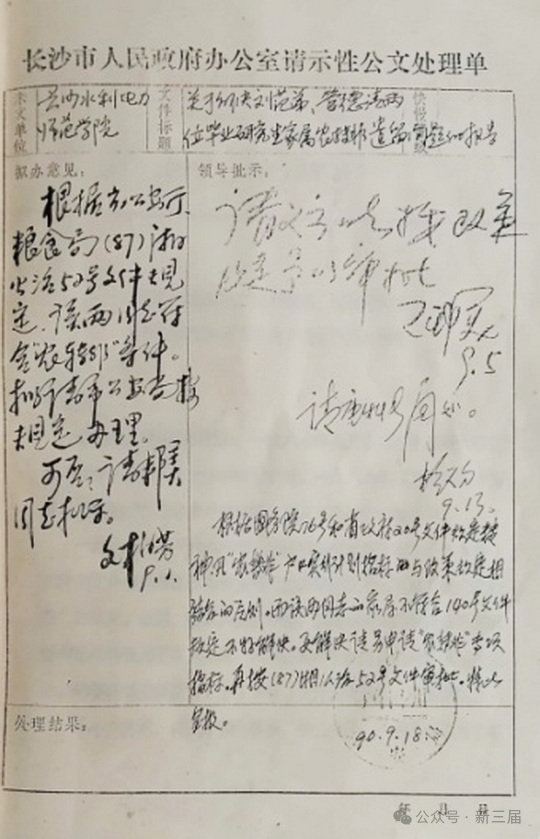 长沙市人民政府办公室请示性公文处理单
来文单位
长沙水利电力
师范学院
文件标题
关于解决刘范弟、曾德清两
位毕业研究生家属农转非遗留问题的报告
拟办意见：
根据省公安厅、
粮食局(87)湘
公治52号文件规
定，该两同志符
合"农转非"条件。
拟请市公安局按
规定办理。
可否，请邦美
同志批示。
9.1.
领导批示：
请公安局按政策
规定予以审批
9.5
请
9.13.
根据国务院76号和省政府20号文件规定精
神及"农转非"户口实行计划指标的与政策规定相
结合的原则。而该两同志的家属不符合140号文件
规定不好解决。要解决请另申请"农转非"专项
指标。再按(87)湘公治52号文件审批。特此
呈报。
90.9.18
处理结果：
年 月 日
公众号·新三届